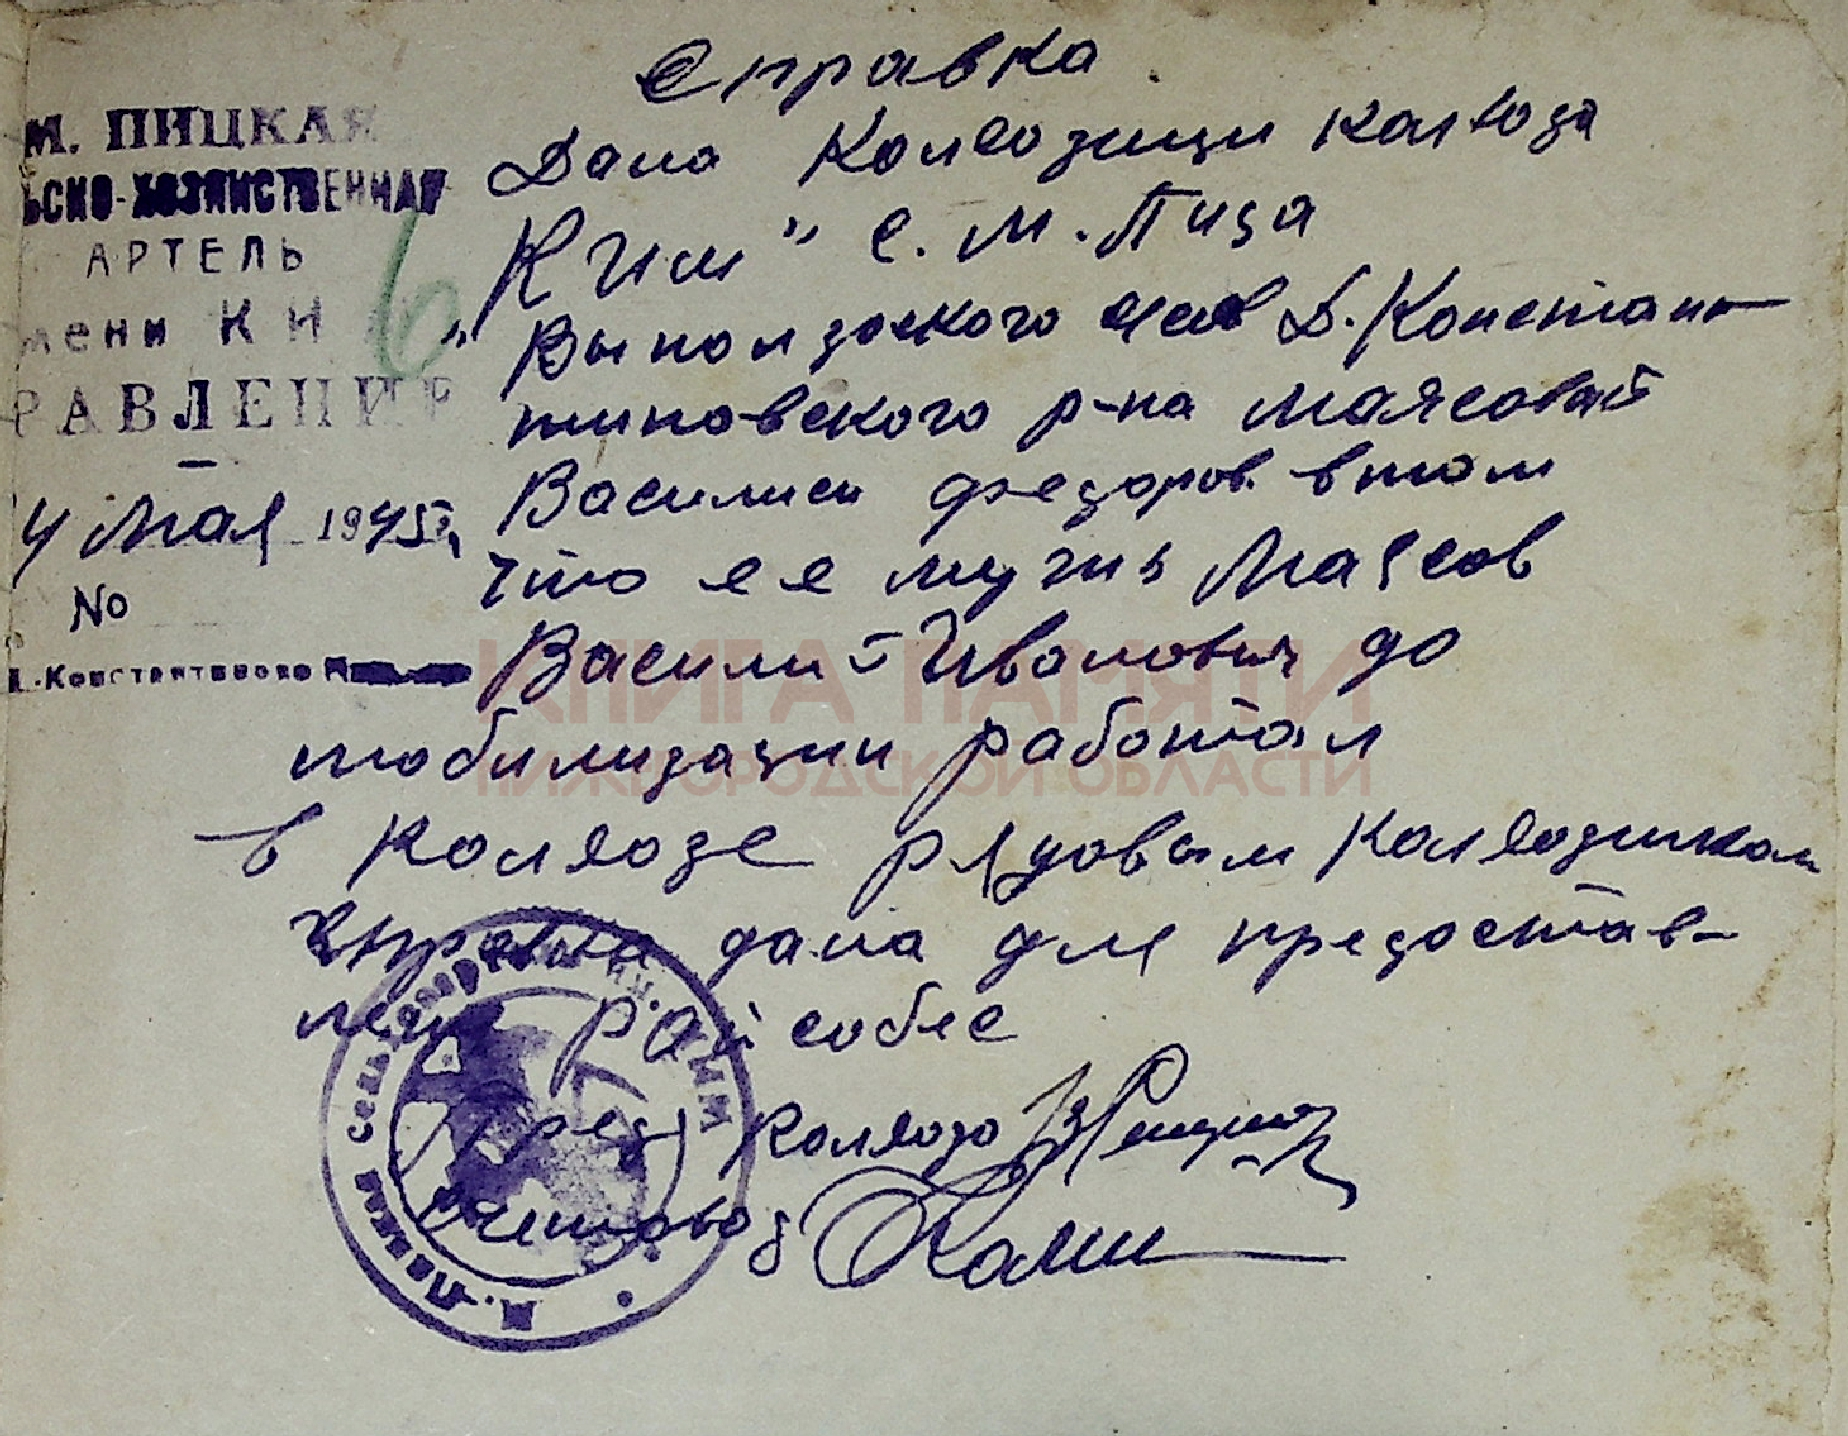 Справка
М. ПИЦКАЯ
ЬСКО-ХОЗЯЙСТВЕННАЯ
АРТЕЛЬ
мени КИ
РАВЛЕНИЕ
4 мая 1945г.
№
Д.-Константиново
6
Дана Колхозници колхоза
"Ким" с. М. Пица
Выползского Д. Констан
тиновского р-на Маясовай
Василиси Федоров. втом
что ее мужь Маясов
Василий Иванович до
мобилизации работал
в колхозе рядовым колхозником
справка дана для предостав-
лени Райсобес
Пред колхоза
Счетовод
КНИГА ПАМЯТИ
НИЖЕГОРОДСКОЙ ОБЛАСТИ